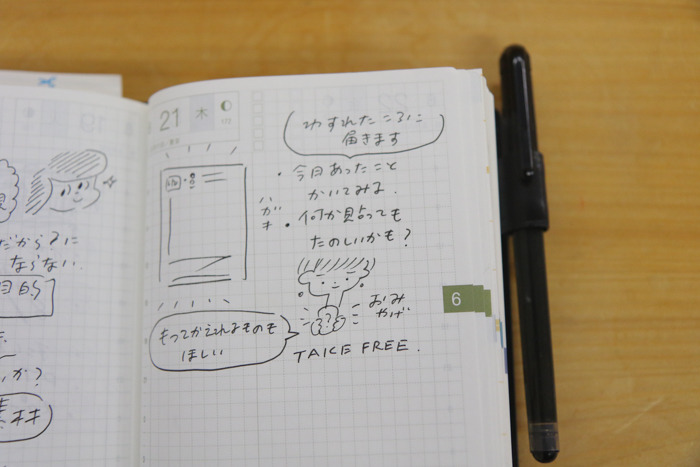 ならない
目的
いか?
素材
21 木
わすれたころに
届きます
・今日あったこと
かいてみる.
ハガキ
・何か貼っても
たのしいかも?
6
おみ
やげ
もってかえれるものも
ほしい
TAKE FREE.